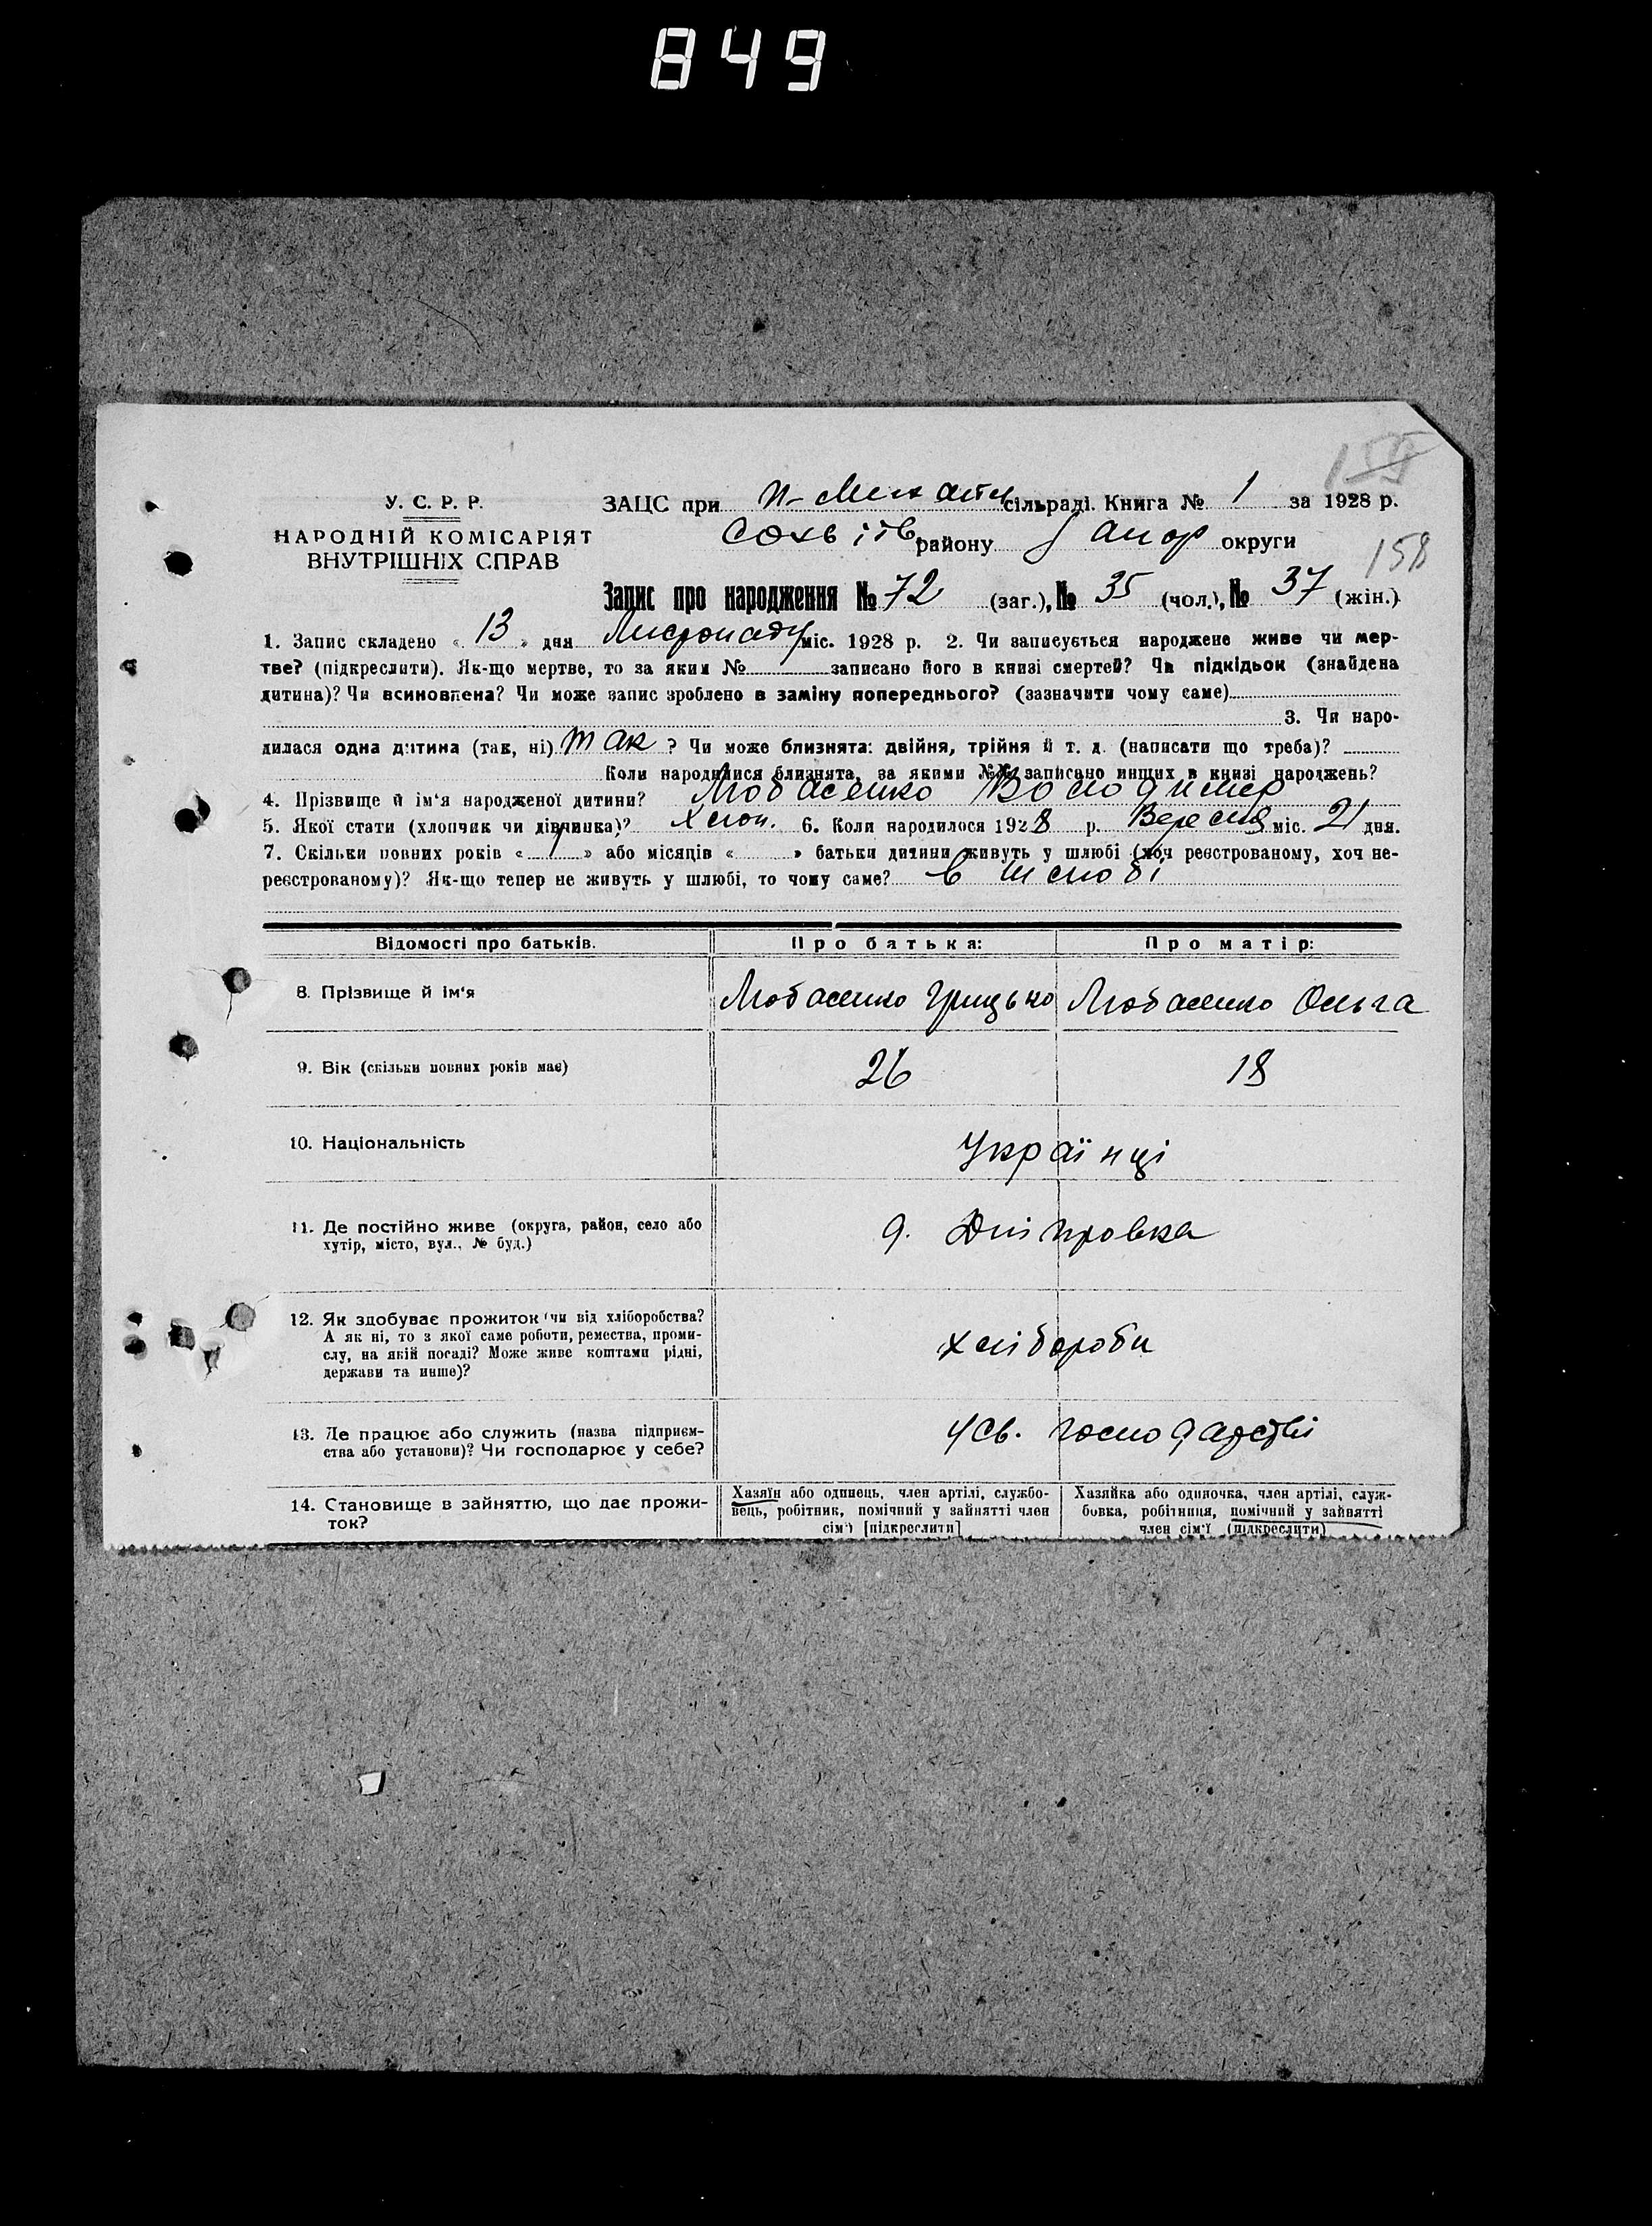 849
159
У. С. Р. Р.
НАРОДНІЙ КОМІСАРІЯТ
ВНУТРІШНІХ СПРАВ
ЗАЦС при Н-Михайл сільраді. Книга № 1 за 1928 р.
Софіїв району Запор округи
158
Запис про народження № 72 (заг.), № 35 (чол.), № 37 (жін.)
1. Запис складено « 13 » дня Листопаду міс. 1928 р. 2. Чи записується народжене живе чи мер-
тве? (підкреслити). Як-що мертве, то за яким № записано його в книзі смертей? Чи підкідьок (знайдена
дитина)? Чи всиновлена? Чи може запис зроблено в заміну попереднього? (зазначити чому саме)
3. Чи наро-
дилася одна дитина (так, ні) так ? Чи може близнята: двійня, трійня й т. д. (написати що треба)?
Коли народилися близнята, за якими №№ записано инших в книзі народжень?
4. Прізвище й ім'я народженої дитини? Любасенко Володимер
5. Якої стати (хлопчик чи дівчинка)? Хлоп. 6. Коли народилося 1928 р. Вересня міс. 21 дня.
7. Скільки повних років « 1 » або місяців « » батьки дитини живуть у шлюбі (хоч реєстрованому, хоч не-
реєстрованому)? Як-що тепер не живуть у шлюбі, то чому саме? в шлюбі
Відомості про батьків. Про батька: Про матір:
8. Прізвище й ім'я Любасенко Грицько Любасенко Ольга
9. Вік (скільки повних років має) 26 18
10. Національність Українці
11. Де постійно живе (округа, район, село або
хутір, місто, вул., № буд.)
д. Дніпровка
12. Як здобуває прожиток (чи від хліборобства?
А як ні, то з якої саме роботи, ремества, проми-
слу, на якій посаді? Може живе коштами рідні,
держави та инше)?
хлібороби
13. Де працює або служить (назва підприєм-
ства або установи)? Чи господарює у себе?
у св. господарстві
14. Становище в зайняттю, що дає прожи-
ток?
Хазяїн або одинець, член артілі, службо-
вець, робітник, помічний у зайнятті член
сім'ї [підкреслити]
Хазяйка або одиночка, член артілі, служ-
бовка, робітниця, помічний у зайнятті
член сім'ї (підкреслити)